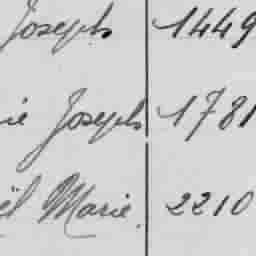 Joseph 1449
ie Joseph 1781
ël Marie. 2210